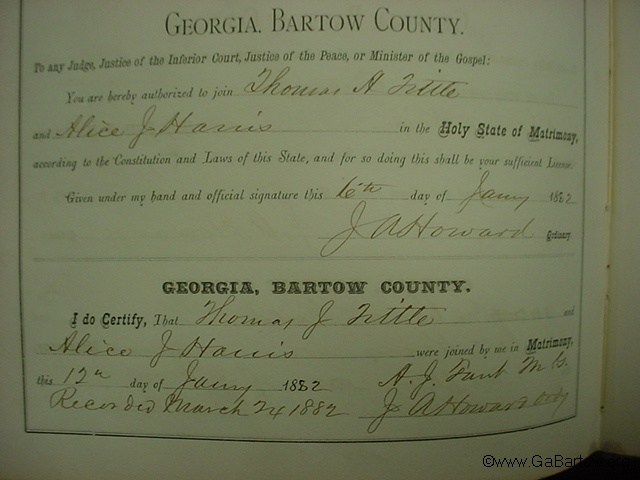 GEORGIA. BARTOW COUNTY.
To any Judge, Justice of the Inferior Court, Justice of the Peace, or Minister of the Gospel:
You are hereby authorized to join Thomas A Tittle
and Alice J Harris in the Holy State of Matrimony,
according to the Constitution and Laws of this State, and for so doing this shall be your sufficient License.
Given under my hand and official signature this 6th day of Jany 1882
J A Howard Ordinary
GEORGIA, BARTOW COUNTY.
I do Certify, That Thomas J Tittle and
Alice J Harris were joined by me in Matrimony,
this 12th day of Jany 1882 A. J. M. G.
Recorded March 24 1882 J A Howard Ordy
©www.GaBartow